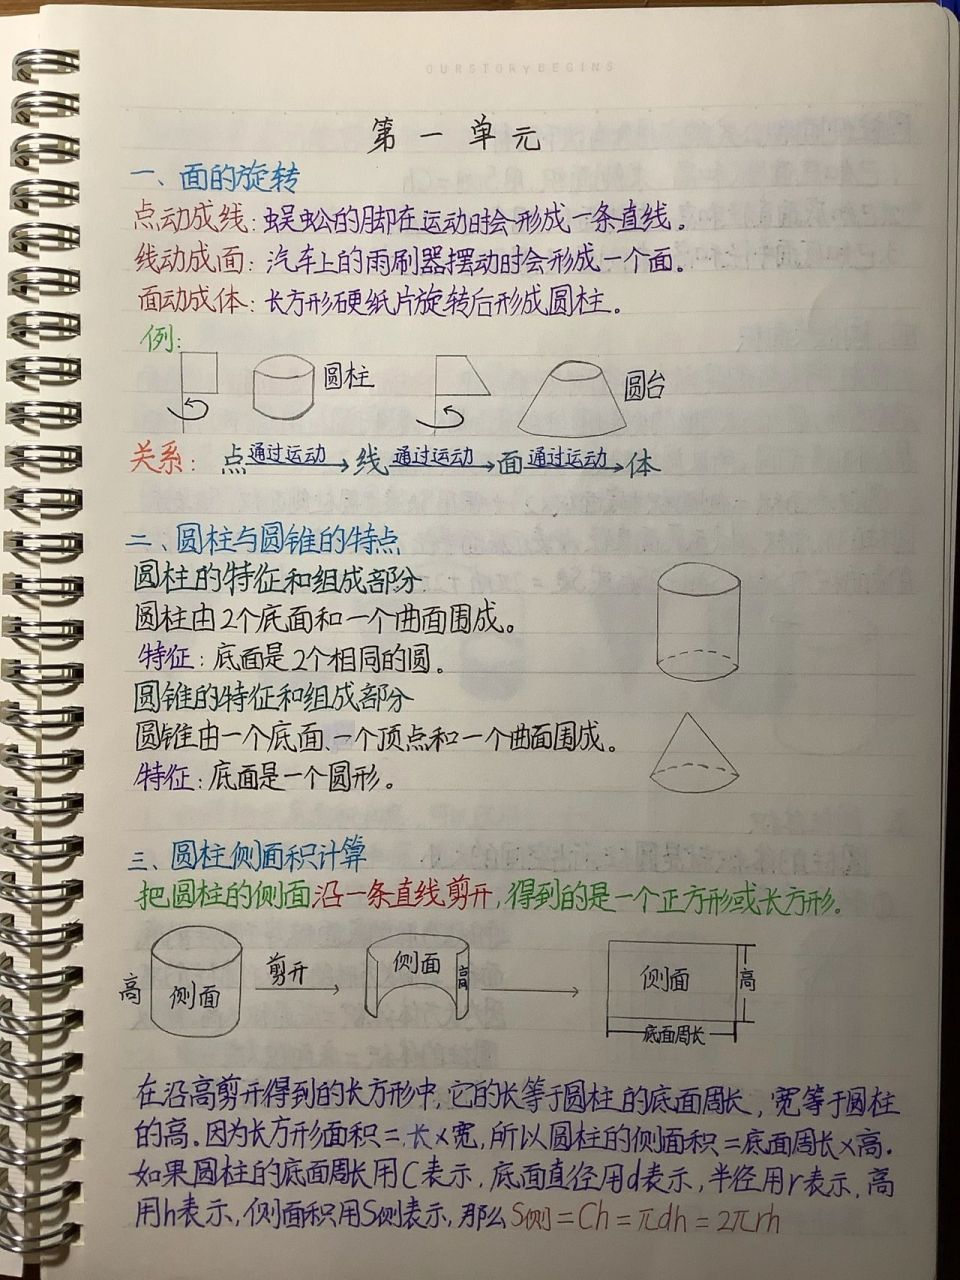 OURSTORYBEGINS
第一单元
一、面的旋转
点动成线:蜈蚣的脚在运动时会形成一条直线。
线动成面:汽车上的雨刷器摆动时会形成一个面。
面动成体:长方形硬纸片旋转后形成圆柱。
例:
圆柱 圆台
关系: 点 通过运动 线 通过运动 面 通过运动 体
二、圆柱与圆锥的特点
圆柱的特征和组成部分
圆柱由2个底面和一个曲面围成。
特征:底面是2个相同的圆。
圆锥的特征和组成部分
圆锥由一个底面、一个顶点和一个曲面围成。
特征:底面是一个圆形。
三、圆柱侧面积计算
把圆柱的侧面沿一条直线剪开,得到的是一个正方形或长方形.
高 侧面 剪开 侧面 高 侧面 高
底面周长
在沿高剪开得到的长方形中,它的长等于圆柱的底面周长,宽等于圆柱
的高.因为长方形面积=长×宽,所以圆柱的侧面积=底面周长×高.
如果圆柱的底面周长用C表示,底面直径用d表示,半径用r表示,高
用h表示,侧面积用S侧表示,那么S侧=Ch=πdh=2πrh